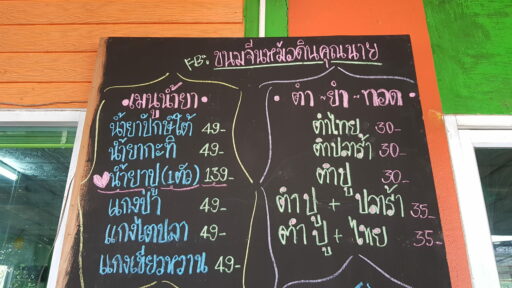 FB: ขนมจีนหม้อดินคุณนาย
เมนูน้ำยา
น้ำยาปักษ์ใต้ 49-
น้ำยากะทิ 49-
น้ำยาปู (1ตัว) 139-
แกงป่า 49-
แกงไตปลา 49-
แกงเขียวหวาน 49-
ตำ - ยำ - ทอด
ตำไทย 30-
ตำปลาร้า 30-
ตำปู 30-
ตำปู + ปลาร้า 35-
ตำปู + ไทย 35-